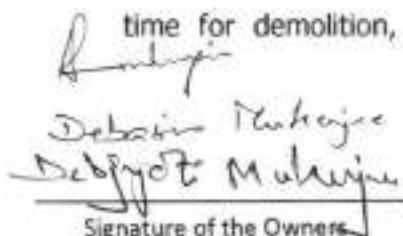 time for demolition,
Mukherjee
Debjyoti Mukherjee
Signature of the Owners